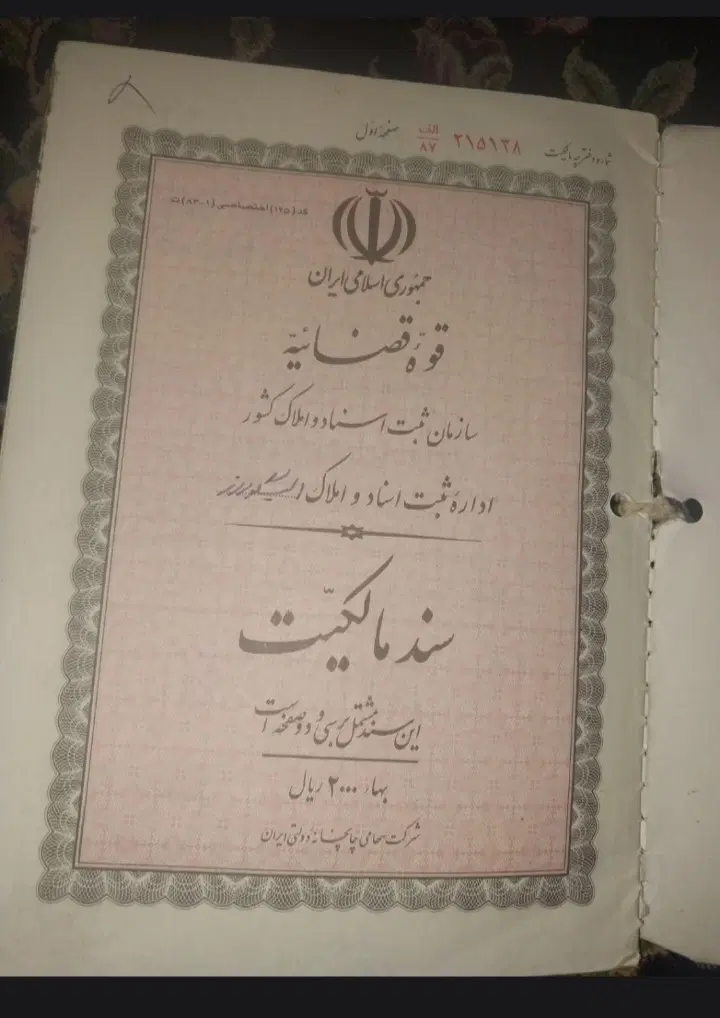 شماره دفترچه مالکیت ۲۱۵۱۲۸ الف ۸۷ صفحهٔ اول
کد (۱۲۵) اختصاصی (۱-۸۳) ت
جمهوری اسلامی ایران
قوهٔ قضائیه
سازمان ثبت اسناد و املاک کشور
ادارهٔ ثبت اسناد و املاک
سند مالکیّت
این سند مشتمل بر سی و دو صفحه است
بهاء ۲۰۰۰ ریال
شرکت سهامی چاپخانهٔ دولتی ایران